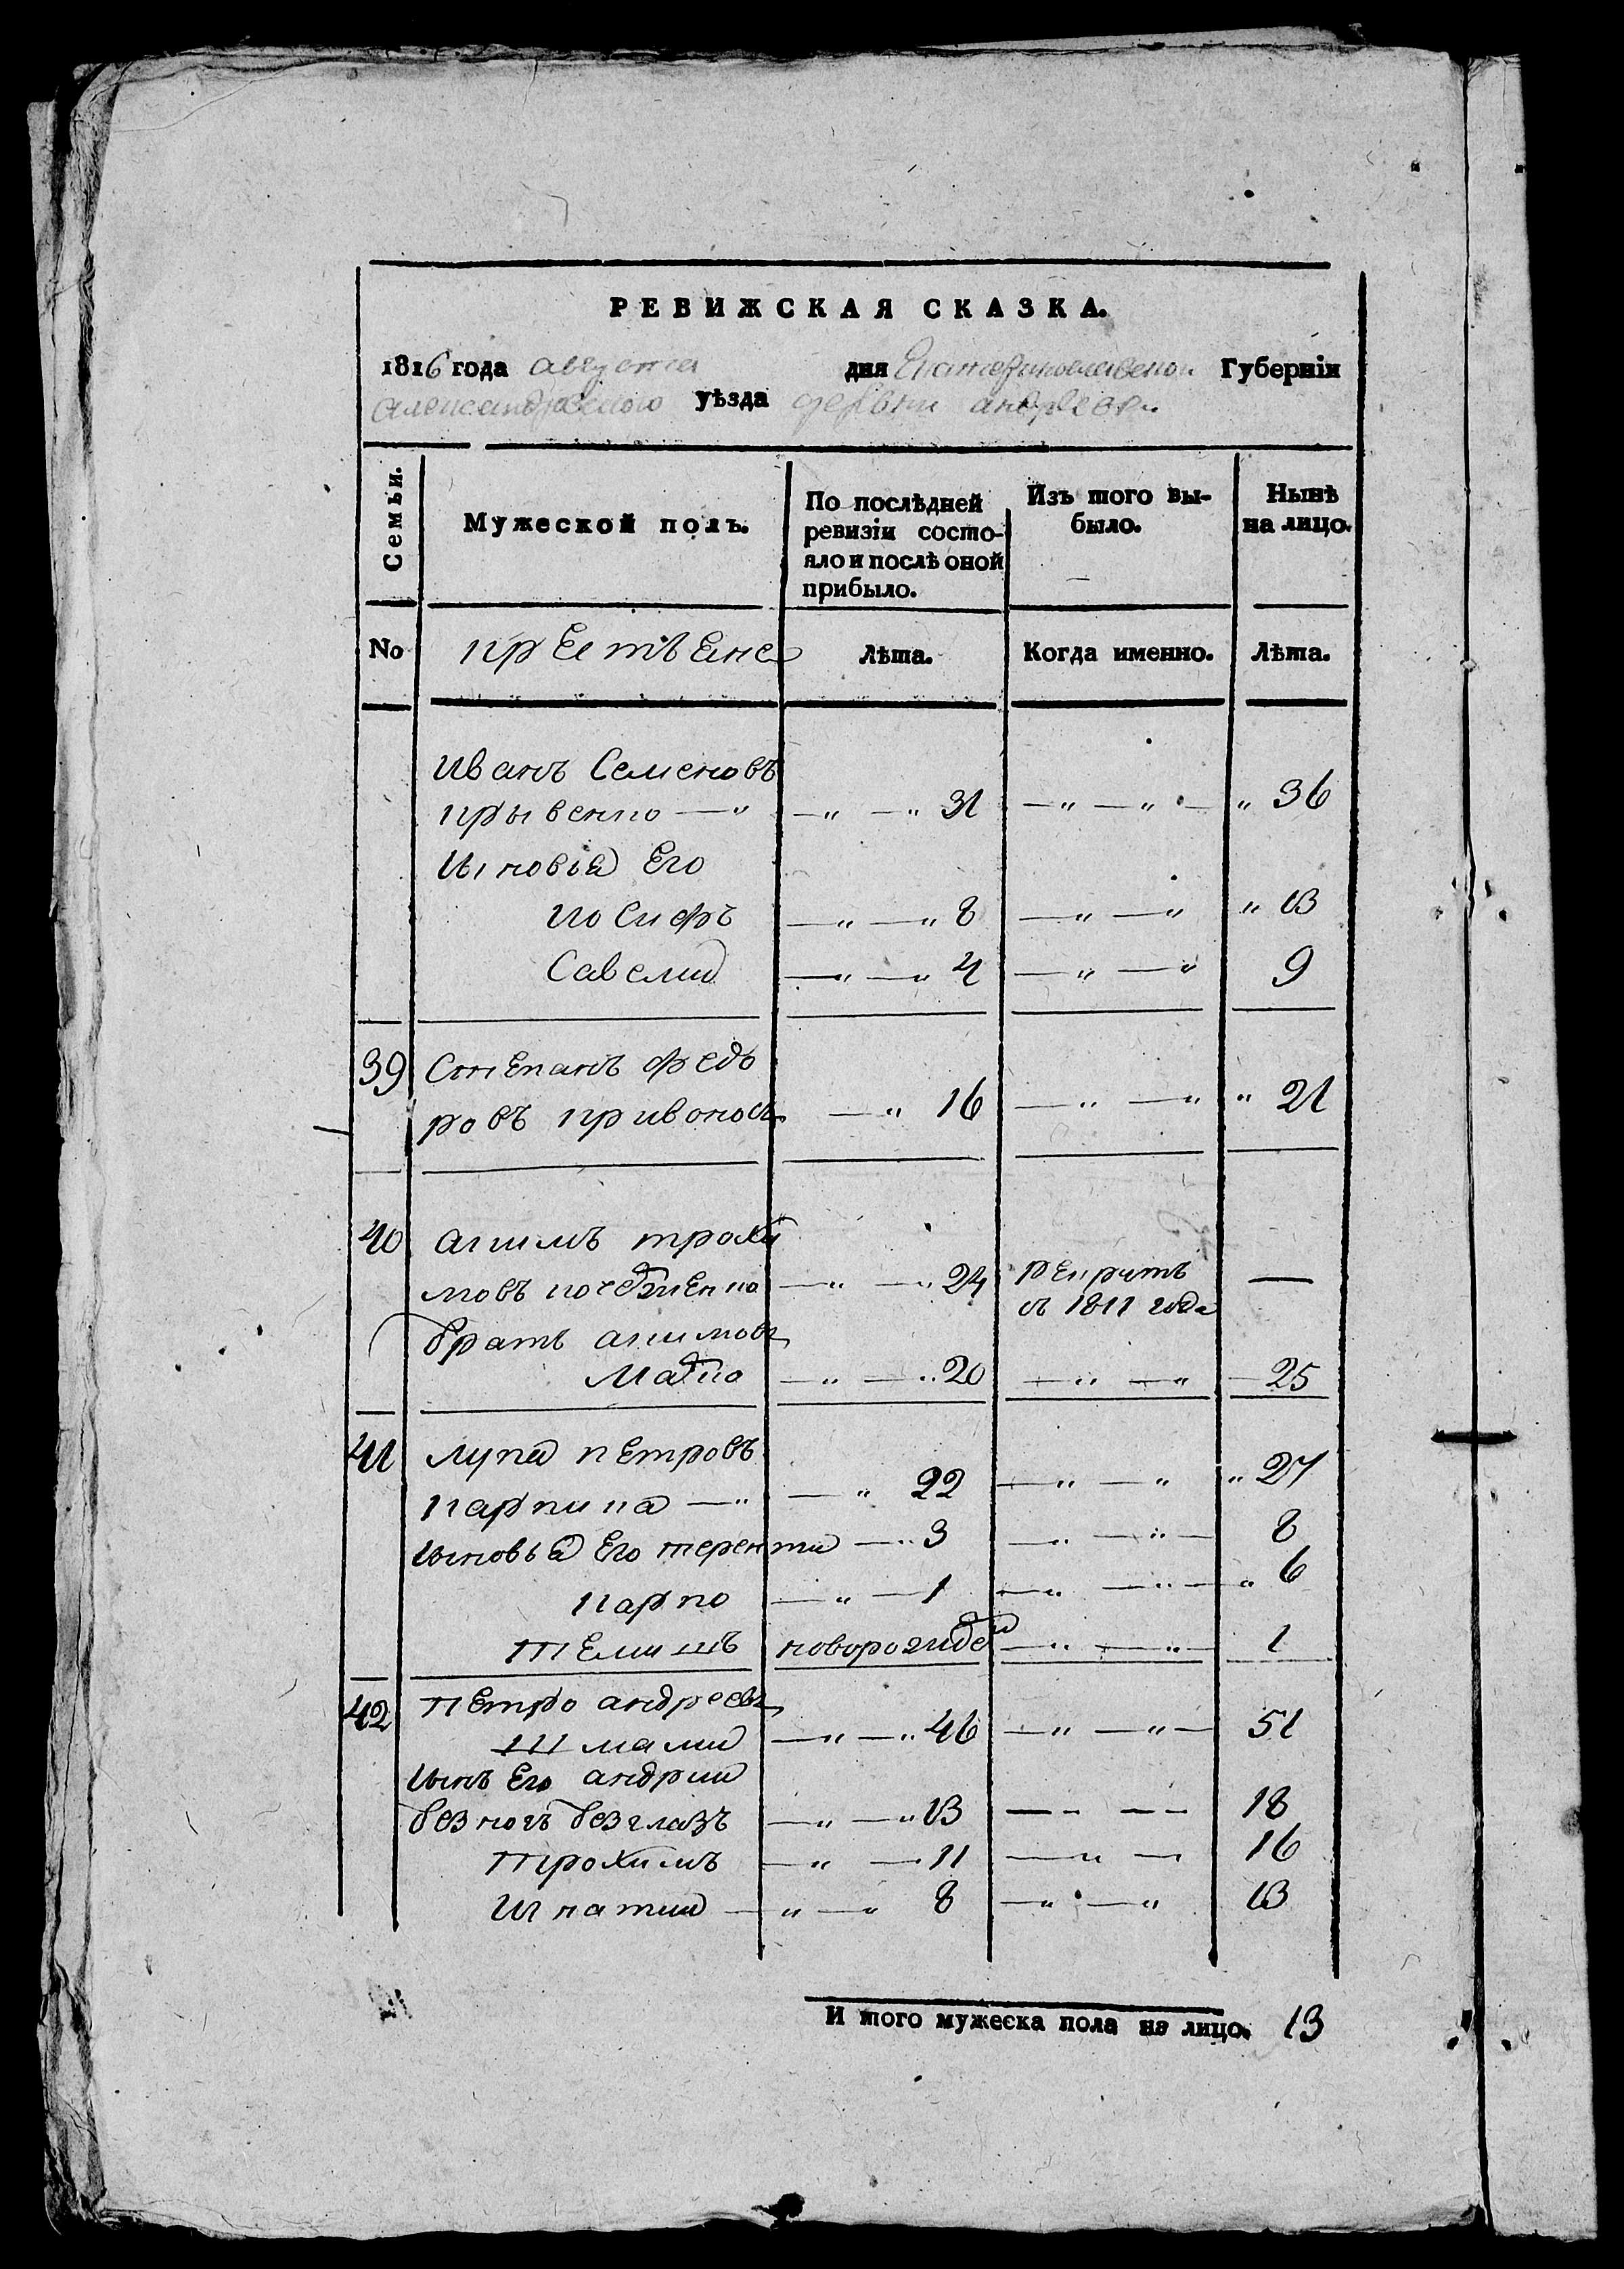 РЕВИЖСКАЯ СКАЗКА.
1816 года августа дня Екатеринославской Губернїи
александровского уѣзда деревни андреевки
Семьи. Мужеской полъ. По послѣдней ревизїи состояло и послѣ оной прибыло. Изъ того выбыло. Нынѣ на лицо.
No крестьяне Лѣта. Когда именно. Лѣта.
Иванъ Семеновъ
крывенко — „ — „ — „ 31 — „ — „ — „ 36
Сыновья Его
Иосифъ — „ — „ 8 — „ — „ „ 13
Савелий — „ — „ 4 — „ — „ 9
39 Степанъ федо
ровъ кривоносъ — „ 16 — „ — „ „ 21
40 акимъ трохи
мовъ — „ — „ 24 рекрутъ —
съ 1811 года
братъ акимовъ
Марко — „ — „ 20 — „ — „ — 25
41 лупа петровъ
карпика — „ — „ 22 — „ — „ „ 27
Сыновья Его терентий — „ 3 — „ — „ — 8
карпо — „ — 1 — „ — „ — „ 6
новорожден — „ — „ — 1
42 петро андреевъ
Шмалий — „ — „ 46 — „ — „ — 51
Сынъ Его андрий
безногъ безглазъ — „ — „ 13 — „ — „ 18
трохимъ — „ — 11 — „ — 16
Игнатий — „ — „ 8 — „ — „ 13
И того мужеска пола на лицо. 13